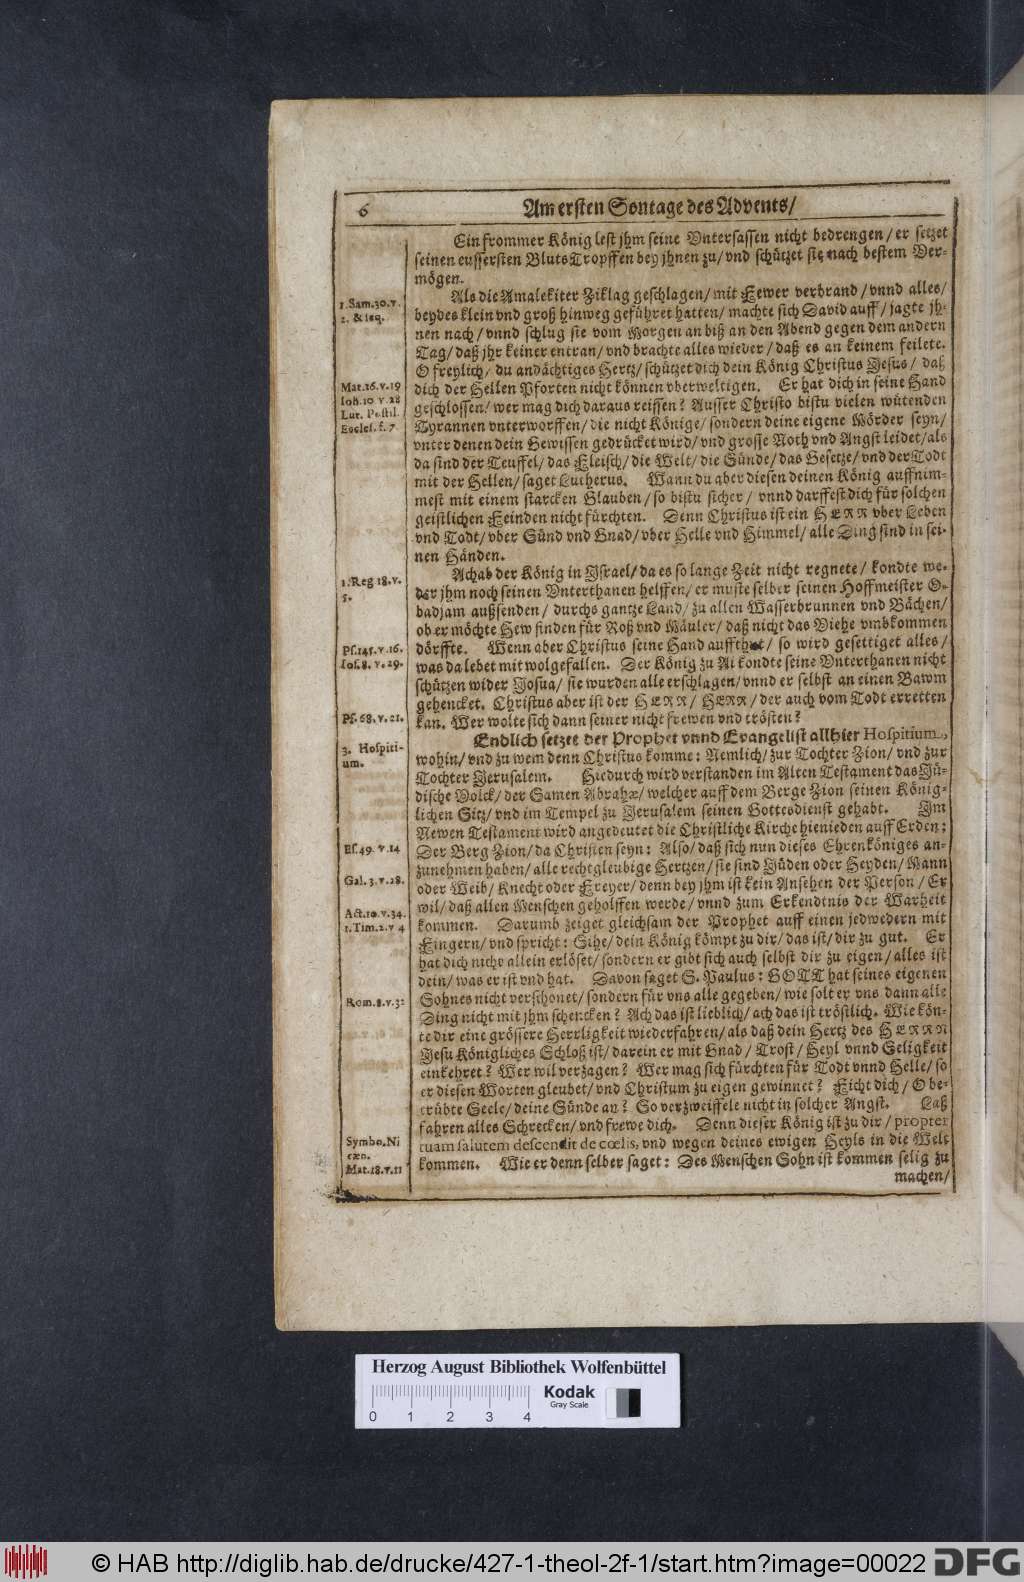 6
Am ersten Sontage des Advents/
Ein frommer König lest jhm seine Vntersassen nicht bedrengen/ er setzet
seinen eussersten BlutsTropffen bey jhnen zu/ vnd schützet sie nach bestem Ver-
mögen.
Als die Amalekiter Ziklag geschlagen/ mit Fewer verbrand/ vnnd alles/
1. Sam. 30. v.
1. & seq.
beydes klein vnd groß hinweg geführet hatten/ machte sich David auff/ jagte jh-
nen nach/ vnnd schlug sie vom Morgen an biß an den Abend gegen dem andern
Tag/ daß jhr keiner entran/ vnd brachte alles wieder/ daß es an keinem feilete.
O freylich/ du andächtiges Hertz/ schützet dich dein König Christus Jesus/ daß
Mat. 16. v. 19
Joh. 10 v. 28
Lut. Postil.
Eccles. f. 7
dich der Hellen Pforten nicht können vberweltigen. Er hat dich in seine Hand
geschlossen/ wer mag dich daraus reissen? Ausser Christo bistu vielen wütenden
Tyrannen vnterworffen/ die nicht Könige/ sondern deine eigene Mörder seyn/
vnter denen dein Gewissen gedrücket wird/ vnd grosse Noth vnd Angst leidet/ als
da sind der Teuffel/ das Fleisch/ die Welt/ die Sünde/ das Gesetze/ vnd der Todt
mit der Hellen/ saget Lutherus. Wann du aber diesen deinen König auffnim-
mest mit einem starcken Glauben/ so bistu sicher/ vnnd darffest dich für solchen
geistlichen Feinden nicht fürchten. Denn Christus ist ein HERR vber Leben
vnd Todt/ vber Sünd vnd Gnad/ vber Helle vnd Himmel/ alle Ding sind in sei-
nen Händen.
Achab der König in Israel/ da es so lange Zeit nicht regnete/ kondte we-
1. Reg 18. v.
5.
der jhm noch seinen Vnterthanen helffen/ er muste selber seinen Hoffmeister O-
badjam außsenden/ durchs gantze Land/ zu allen Wasserbrunnen vnd Bächen/
ob er möchte Hew finden für Roß vnd Mäuler/ daß nicht das Viehe vmbkommen
dörffte. Wenn aber Christus seine Hand auffthut/ so wird gesettiget alles/
Ps. 145. v. 16.
Jos. 8. v. 29.
was da lebet mit wolgefallen. Der König zu Ai kondte seine Vnterthanen nicht
schützen wider Josua/ sie wurden alle erschlagen/ vnnd er selbst an einen Bawm
gehencket. Christus aber ist der HERR/ HERR/ der auch vom Todt erretten
Ps. 68. v. 21.
kan. Wer wolte sich dann seiner nicht frewen vnd trösten?
Endlich setzet der Prophet vnnd Evangelist allhier Hospitium,
3. Hospiti-
um.
wohin/ vnd zu wem denn Christus komme: Nemlich/ zur Tochter Zion/ vnd zur
Tochter Jerusalem. Hiedurch wird verstanden im Alten Testament das Jü-
dische Volck/ der Samen Abrahæ/ welcher auff dem Berge Zion seinen König-
lichen Sitz/ vnd im Tempel zu Jerusalem seinen Gottesdienst gehabt. Im
Newen Testament wird angedeutet die Christliche Kirche hienieden auff Erden:
Es. 49. v. 14
Der Berg Zion/ da Christen seyn: Also/ daß sich nun dieses Ehrenköniges an-
zunehmen haben/ alle rechtgleubige Hertzen/ sie sind Jüden oder Heyden/ Mann
Gal. 3. v. 28.
oder Weib/ Knecht oder Freyer/ denn bey jhm ist kein Ansehen der Person/ Er
wil/ daß allen Menschen geholffen werde/ vnnd zum Erkendtnis der Warheit
Act. 10. v. 34.
1. Tim. 2. v 4
kommen. Darumb zeiget gleichsam der Prophet auff einen jedwedern mit
Fingern/ vnd spricht: Sihe/ dein König kömpt zu dir/ das ist/ dir zu gut. Er
hat dich nicht allein erlöset/ sondern er gibt sich auch selbst dir zu eigen/ alles ist
dein/ was er ist vnd hat. Davon saget S. Paulus: GOTT hat seines eigenen
Rom. 8. v. 32
Sohnes nicht verschonet/ sondern für vns alle gegeben/ wie solt er vns dann alle
Ding nicht mit jhm schencken? Ach das ist lieblich/ ach das ist tröstlich. Wie kön-
te dir eine grössere Herrligkeit wiederfahren/ als daß dein Hertz des HERRN
Jesu Königliches Schloß ist/ darein er mit Gnad/ Trost/ Heyl vnnd Seligkeit
einkehret? Wer wil verzagen? Wer mag sich fürchten für Todt vnnd Helle/ so
er diesen Worten gleubet/ vnd Christum zu eigen gewinnet? Ficht dich/ O be-
trübte Seele/ deine Sünde an? So verzweiffele nicht in solcher Angst. Laß
fahren alles Schrecken/ vnd frewe dich. Denn dieser König ist zu dir/ propter
Symbo. Ni
cæn.
tuam salutem descendit de cœlis, vnd wegen deines ewigen Heyls in die Welt
Mat. 18. v. 11
kommen. Wie er denn selber saget: Des Menschen Sohn ist kommen selig zu
machen/
Herzog August Bibliothek Wolfenbüttel
0 1 2 3 4
Kodak
Gray Scale
© HAB http://diglib.hab.de/drucke/427-1-theol-2f-1/start.htm?image=00022
DFG